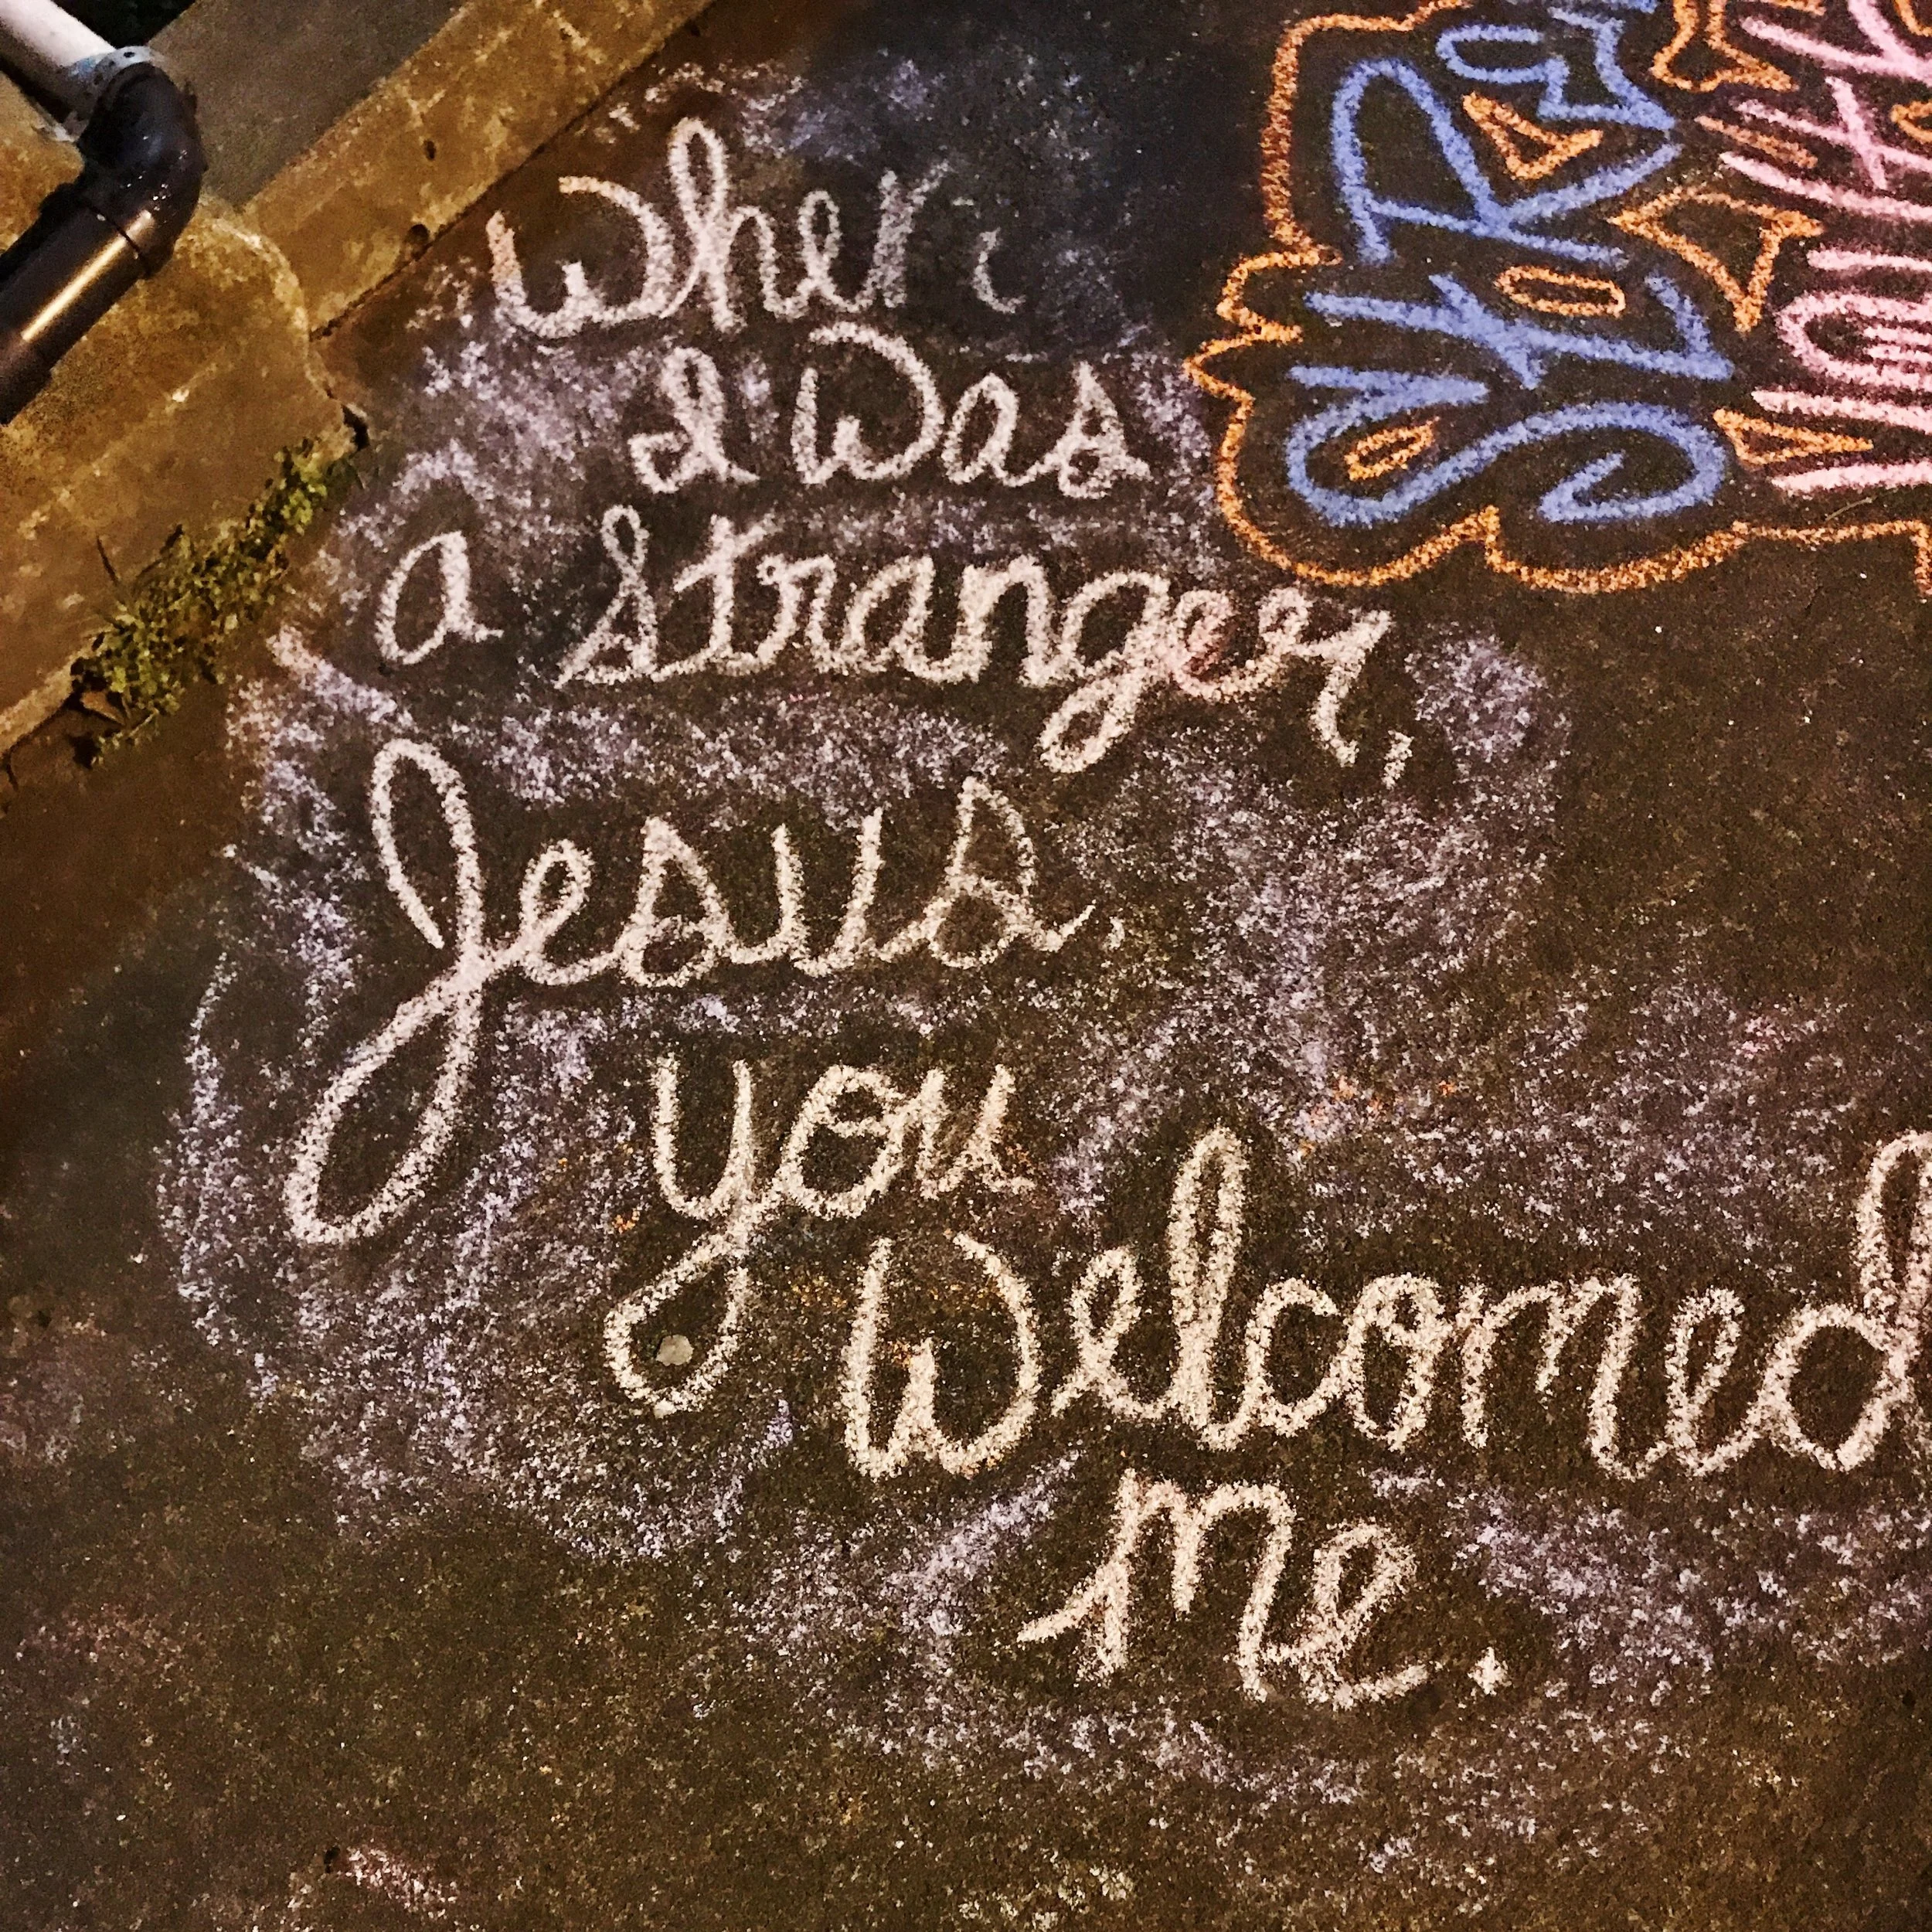 When
I Was
a Stranger,
Jesus,
you
Welcomed
me.